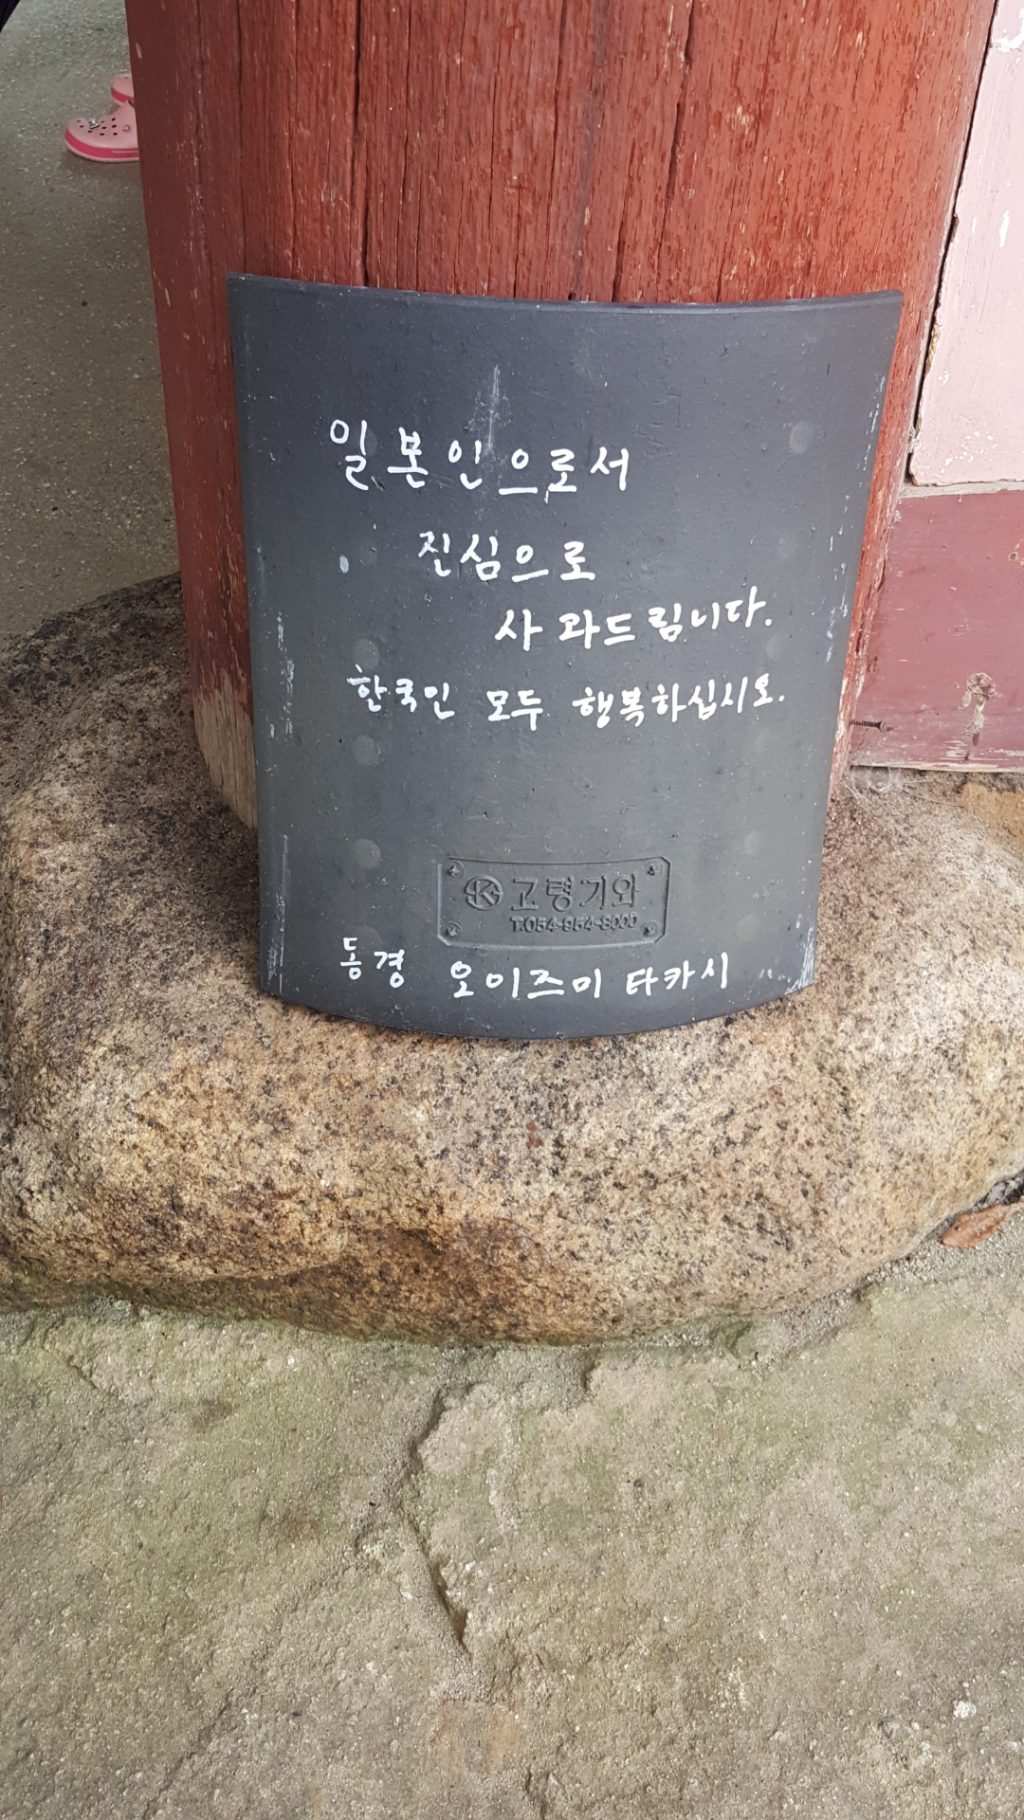 일본인으로서
진심으로
사과드립니다.
한국인 모두 행복하십시오.
고령기와
T.054-954-8000
동경 오이즈미 타카시